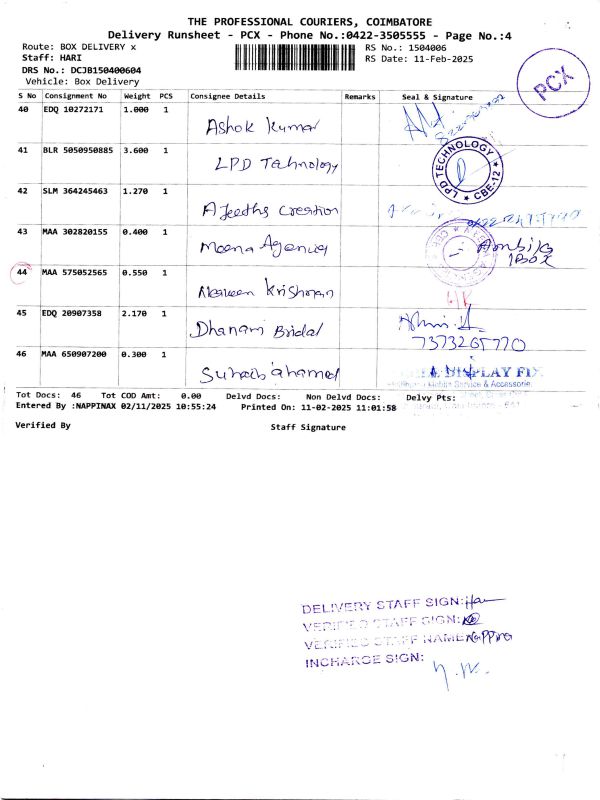 THE PROFESSIONAL COURIERS, COIMBATORE
Delivery Runsheet - PCX - Phone No.:0422-3505555 - Page No.:4
Route: BOX DELIVERY x RS No.: 1504006
Staff: HARI RS Date: 11-Feb-2025
DRS No.: DCJB150400604
Vehicle: Box Delivery
PCX
S No Consignment No Weight PCS Consignee Details Remarks Seal & Signature
40 EDQ 10272171 1.000 1 Ashok Kumar
41 BLR 5050950885 3.600 1 LPD Tahnology LPD TECHNOLOGY CBE-12
42 SLM 364245463 1.270 1 Ajeeths Creation
43 MAA 302820155 0.400 1 Meena Agencey Ambika
1 Box
44 MAA 575052565 0.550 1 Naveen Krishnan
45 EDQ 20907358 2.170 1 Dhanam Bridal
7373265770
46 MAA 650907200 0.300 1 Suhaib ahamed DISPLAY FIX
Mobile Service & Accessorie
Tot Docs: 46 Tot COD Amt: 0.00 Delvd Docs: Non Delvd Docs: Delvy Pts:
Entered By :NAPPINAX 02/11/2025 10:55:24 Printed On: 11-02-2025 11:01:58
Verified By Staff Signature
DELIVERY STAFF SIGN: Hari
VERIFIED STAFF SIGN:
VERIFIED STAFF NAME Nappina
INCHARGE SIGN: